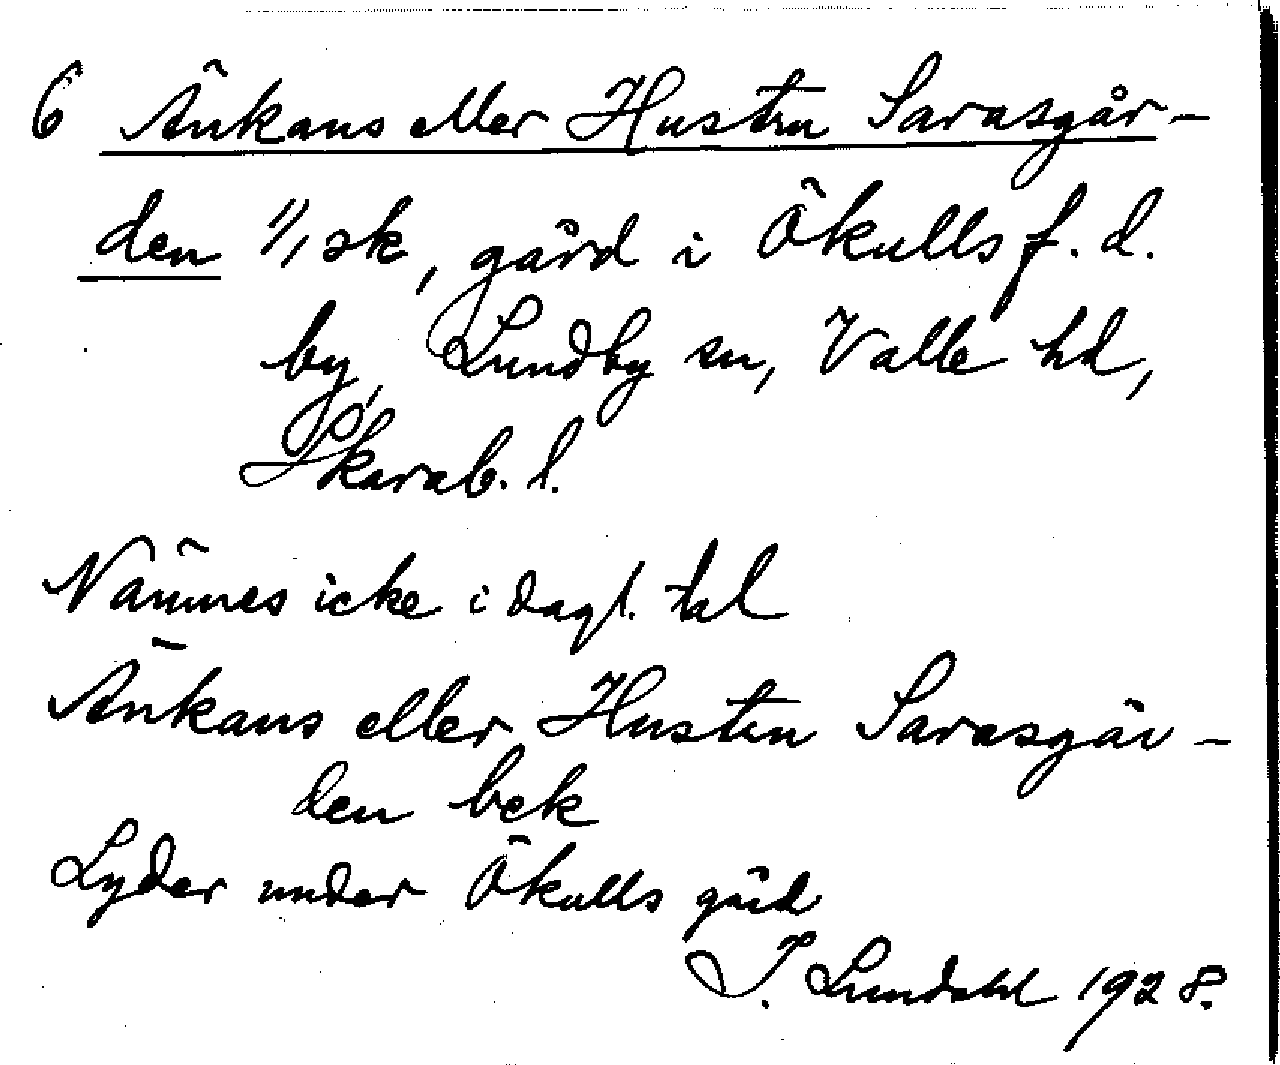 6 Änkans eller Hustru Sarasgår-
den 1/1 sk, gård i Ökulls f. d.
by, Lundby sn, Valle hd,
Skarab. l.
Nämnes icke i dagl. tal
Änkans eller Hustru Sarasgår-
den bek
Lyder under Ökulls gård
I. Lundahl 1928.